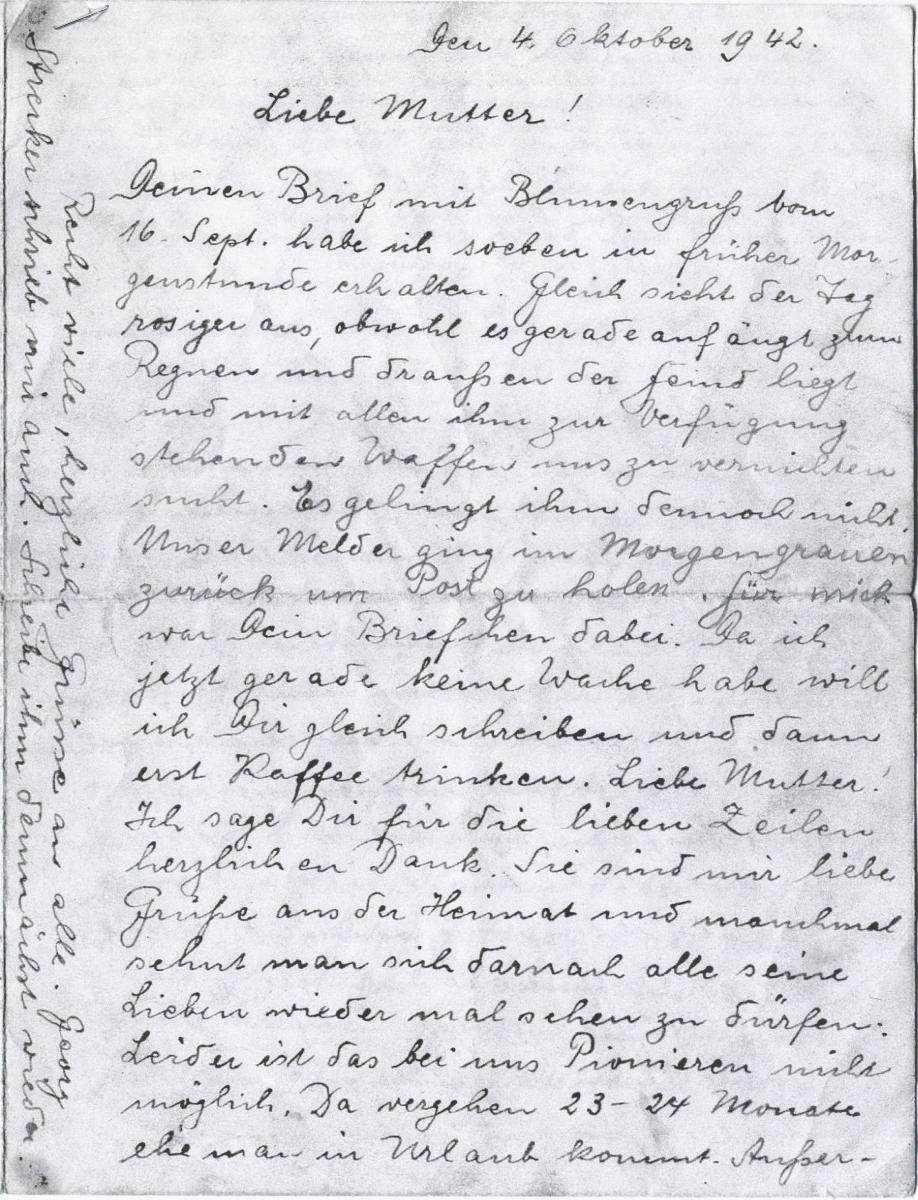 Den 4. Oktober 1942.
Liebe Mutter!
Deinen Brief mit Blumengruß vom
16. Sept. habe ich soeben in früher Mor-
genstunde erhalten. Gleich sieht der Tag
rosiger aus, obwohl es gerade anfängt zum
Regnen und draußen der Feind liegt
und mit allen ihm zur Verfügung
stehenden Waffen uns zu vernichten
sucht. Es gelingt ihm dennoch nicht.
Unser Melder ging im Morgengrauen
zurück um Post zu holen. Für mich
war Dein Briefchen dabei. Da ich
jetzt gerade keine Wache habe will
ich Dir gleich schreiben und dann
erst Kaffee trinken. Liebe Mutter!
Ich sage Dir für die lieben Zeilen
herzlichen Dank. Sie sind mir liebe
Grüße aus der Heimat und manchmal
sehnt man sich darnach alle seine
Lieben wieder mal sehen zu dürfen.
Leider ist das bei uns Pionieren nicht
möglich. Da vergehen 23-24 Monate
ehe man in Urlaub kommt. Außer-
Recht viele, herzliche Grüsse an alle. Georg
Strecker schrieb mir auch. Schreibe ihm demnächst wieder.